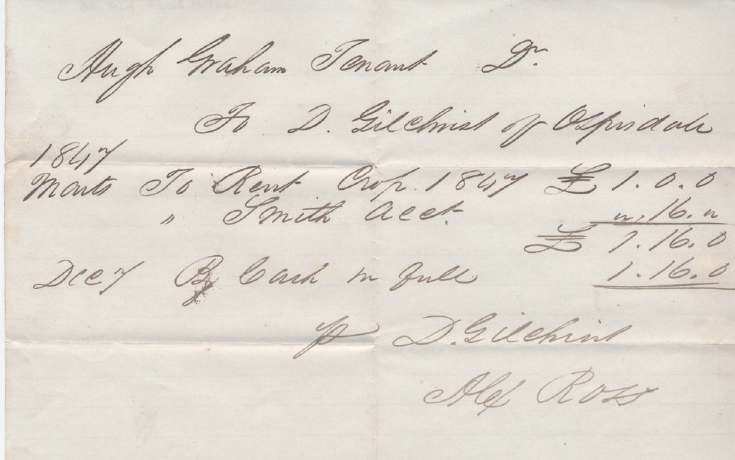 Hugh Graham Tenant Dr
To D. Gilchrist of Ospisdale
1847
Marts To Rent Crop 1847 £ 1.0.0
" Smith Acct. ".16."
£ 1.16.0
Decr 7 By Cash in full 1.16.0
p D. Gilchrist
Alex Ross